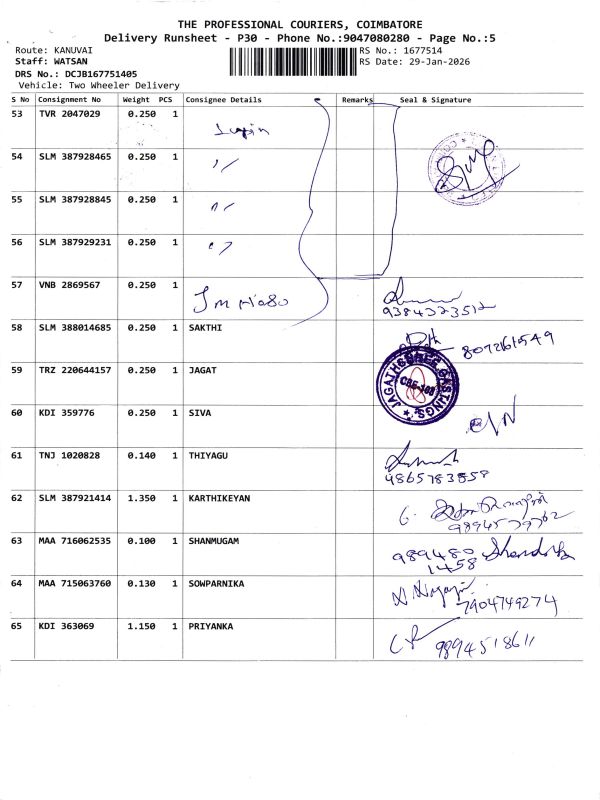 THE PROFESSIONAL COURIERS, COIMBATORE
Delivery Runsheet - P30 - Phone No.:9047080280 - Page No.:5
Route: KANUVAI
RS No.: 1677514
Staff: WATSAN
RS Date: 29-Jan-2026
DRS No.: DCJB167751405
Vehicle: Two Wheeler Delivery
S No Consignment No Weight PCS Consignee Details Remarks Seal & Signature
53 TVR 2047029 0.250 1
54 SLM 387928465 0.250 1
55 SLM 387928845 0.250 1
56 SLM 387929231 0.250 1
57 VNB 2869567 0.250 1
9384323512
58 SLM 388014685 0.250 1 SAKTHI
8072616549
59 TRZ 220644157 0.250 1 JAGAT
60 KDI 359776 0.250 1 SIVA
61 TNJ 1020828 0.140 1 THIYAGU
62 SLM 387921414 1.350 1 KARTHIKEYAN
63 MAA 716062535 0.100 1 SHANMUGAM
989480
1458
64 MAA 715063760 0.130 1 SOWPARNIKA
7904749274
65 KDI 363069 1.150 1 PRIYANKA
9894518611